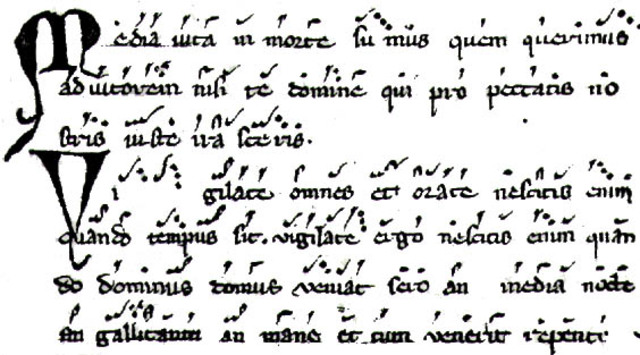 Media uita in morte su mus quem querimus
ad iutorem nisi te domine qui pro peccatis no
stris iuste ira sceris.
Vi gilate omnes et orate nescitis enim
quando tempus sit. vigilate ergo nescitis enim quan
do dominus domus veniat sero an media nocte
an gallicantu an mane et cum venerit repente